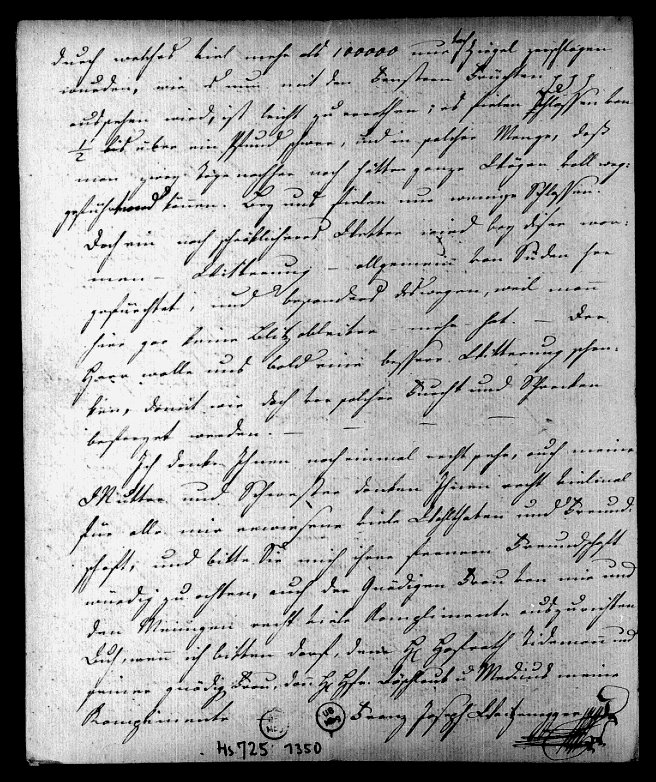 durch welches viel mehr als 100000 nur Ziegel zerschlagen
wurden, wie es nun mit den Fenstern
aussehen wird, ist leicht zu errathen; es fielen Schlossen von
1/2 bis über ein Pfund schwer, und in solcher Menge, daß
man zwey Tage nachher noch hätte ganze Wägen voll weg-
geführt können. Bey uns fielen nur wenige Schlossen.
Doch ein noch schröklicheres Wetter wird bey diser war-
men – Witterung – allgemein von Süden her
gefürchtet, und besonders deßwegen, weil man
hier gar keine Blitzableiter mehr hat. – Der
Herr wolle uns bald eine bessere Witterung schen-
ken, damit wir doch von solcher Furcht und Schrecken
befreyet werden. – – – –
Ich danke Ihnen noch einmal recht sehr, auch meine
Mutter und Schwester danken Ihnen recht vielmal
für alle mir erwiesene viele Wohlthaten und Freund-
schaft, und bitte Sie mich ihrer fernern Freundschaft
würdig zu achten, auch der Gnädigen Frau von mir und
den Meinigen recht viele Komplimente auszurichten
Auch, wenn ich bitten darf, dem H. Hofrath Tidemann und
seiner gnädig. Frau, dem H. und Medicus meine
Komplimente Franz Joseph
Hs 725: 1350